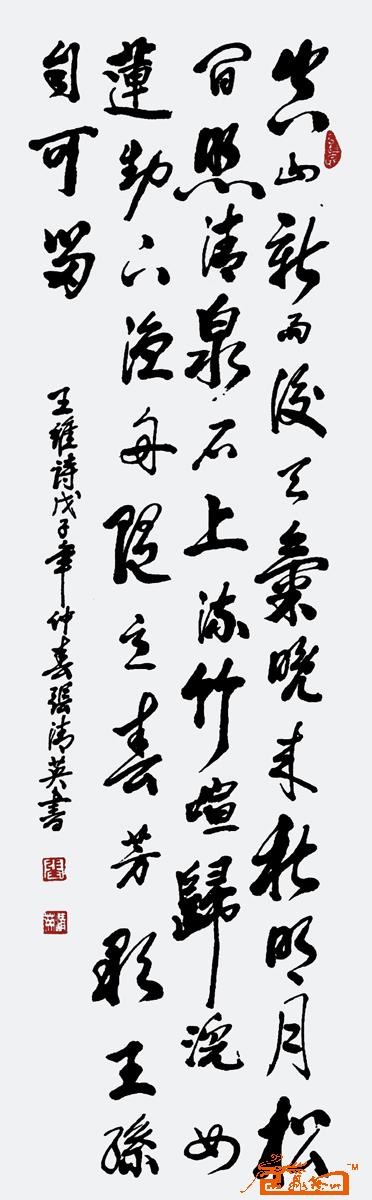 空山新雨後天氣晚来秋明月松
間照清泉石上流竹喧歸浣女
蓮動下漁舟隨意春芳歇王孫
自可留
王維詩戊子年仲春張清英書